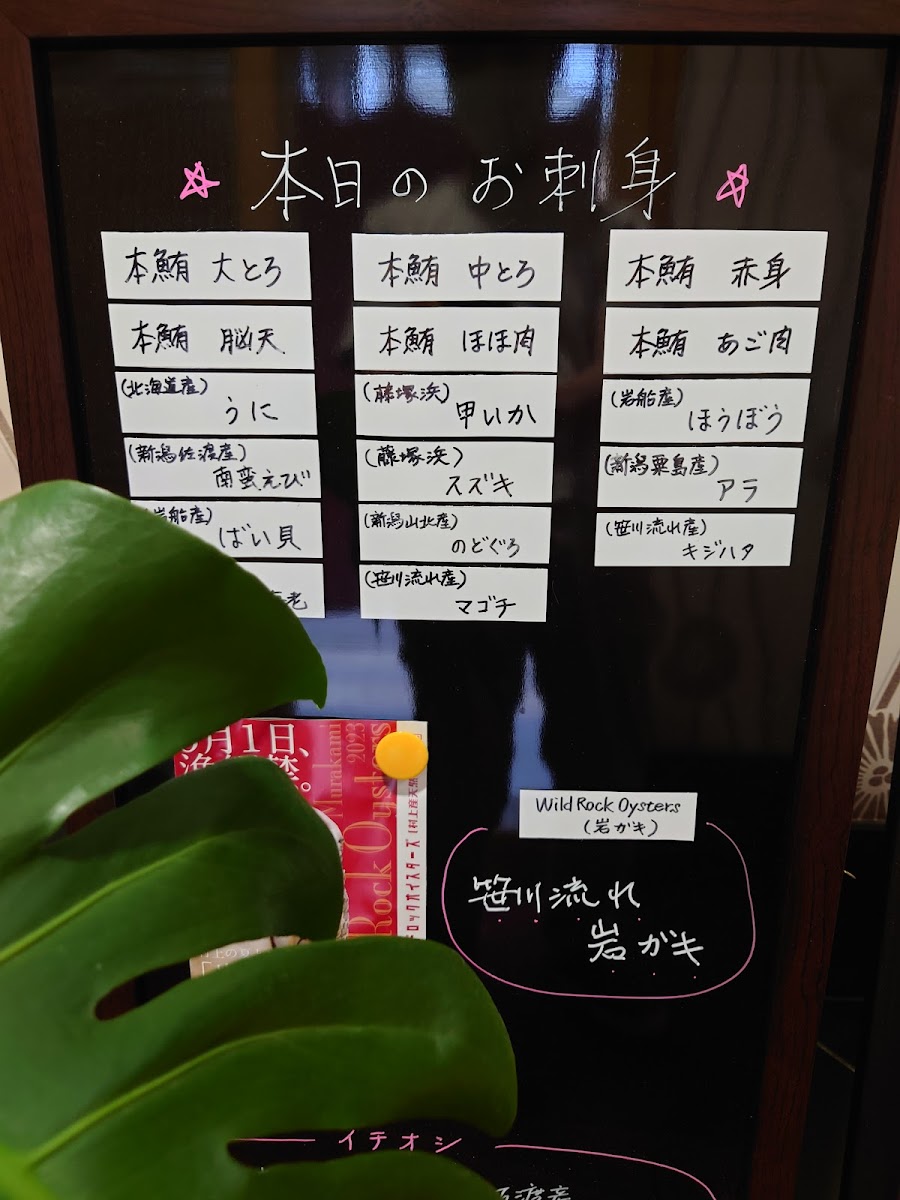 本日のお刺身
本鮪 大とろ
本鮪 中とろ
本鮪 赤身
本鮪 脳天
本鮪 ほほ肉
本鮪 あご肉
(北海道産)
うに
(藤塚浜)
甲いか
(岩船産)
ほうぼう
(新潟佐渡産)
南蛮えび
(藤塚浜)
スズキ
(新潟粟島産)
アラ
岩船産)
ばい貝
(新潟山北産)
のどぐろ
(笹川流れ産)
キジハタ
老
(笹川流れ産)
マゴチ
月1日、
Murakami
2023
Rock Oysters
ロックオイスターズ
Wild Rock Oysters
(岩ガキ)
笹川流れ
岩ガキ
イチオシ